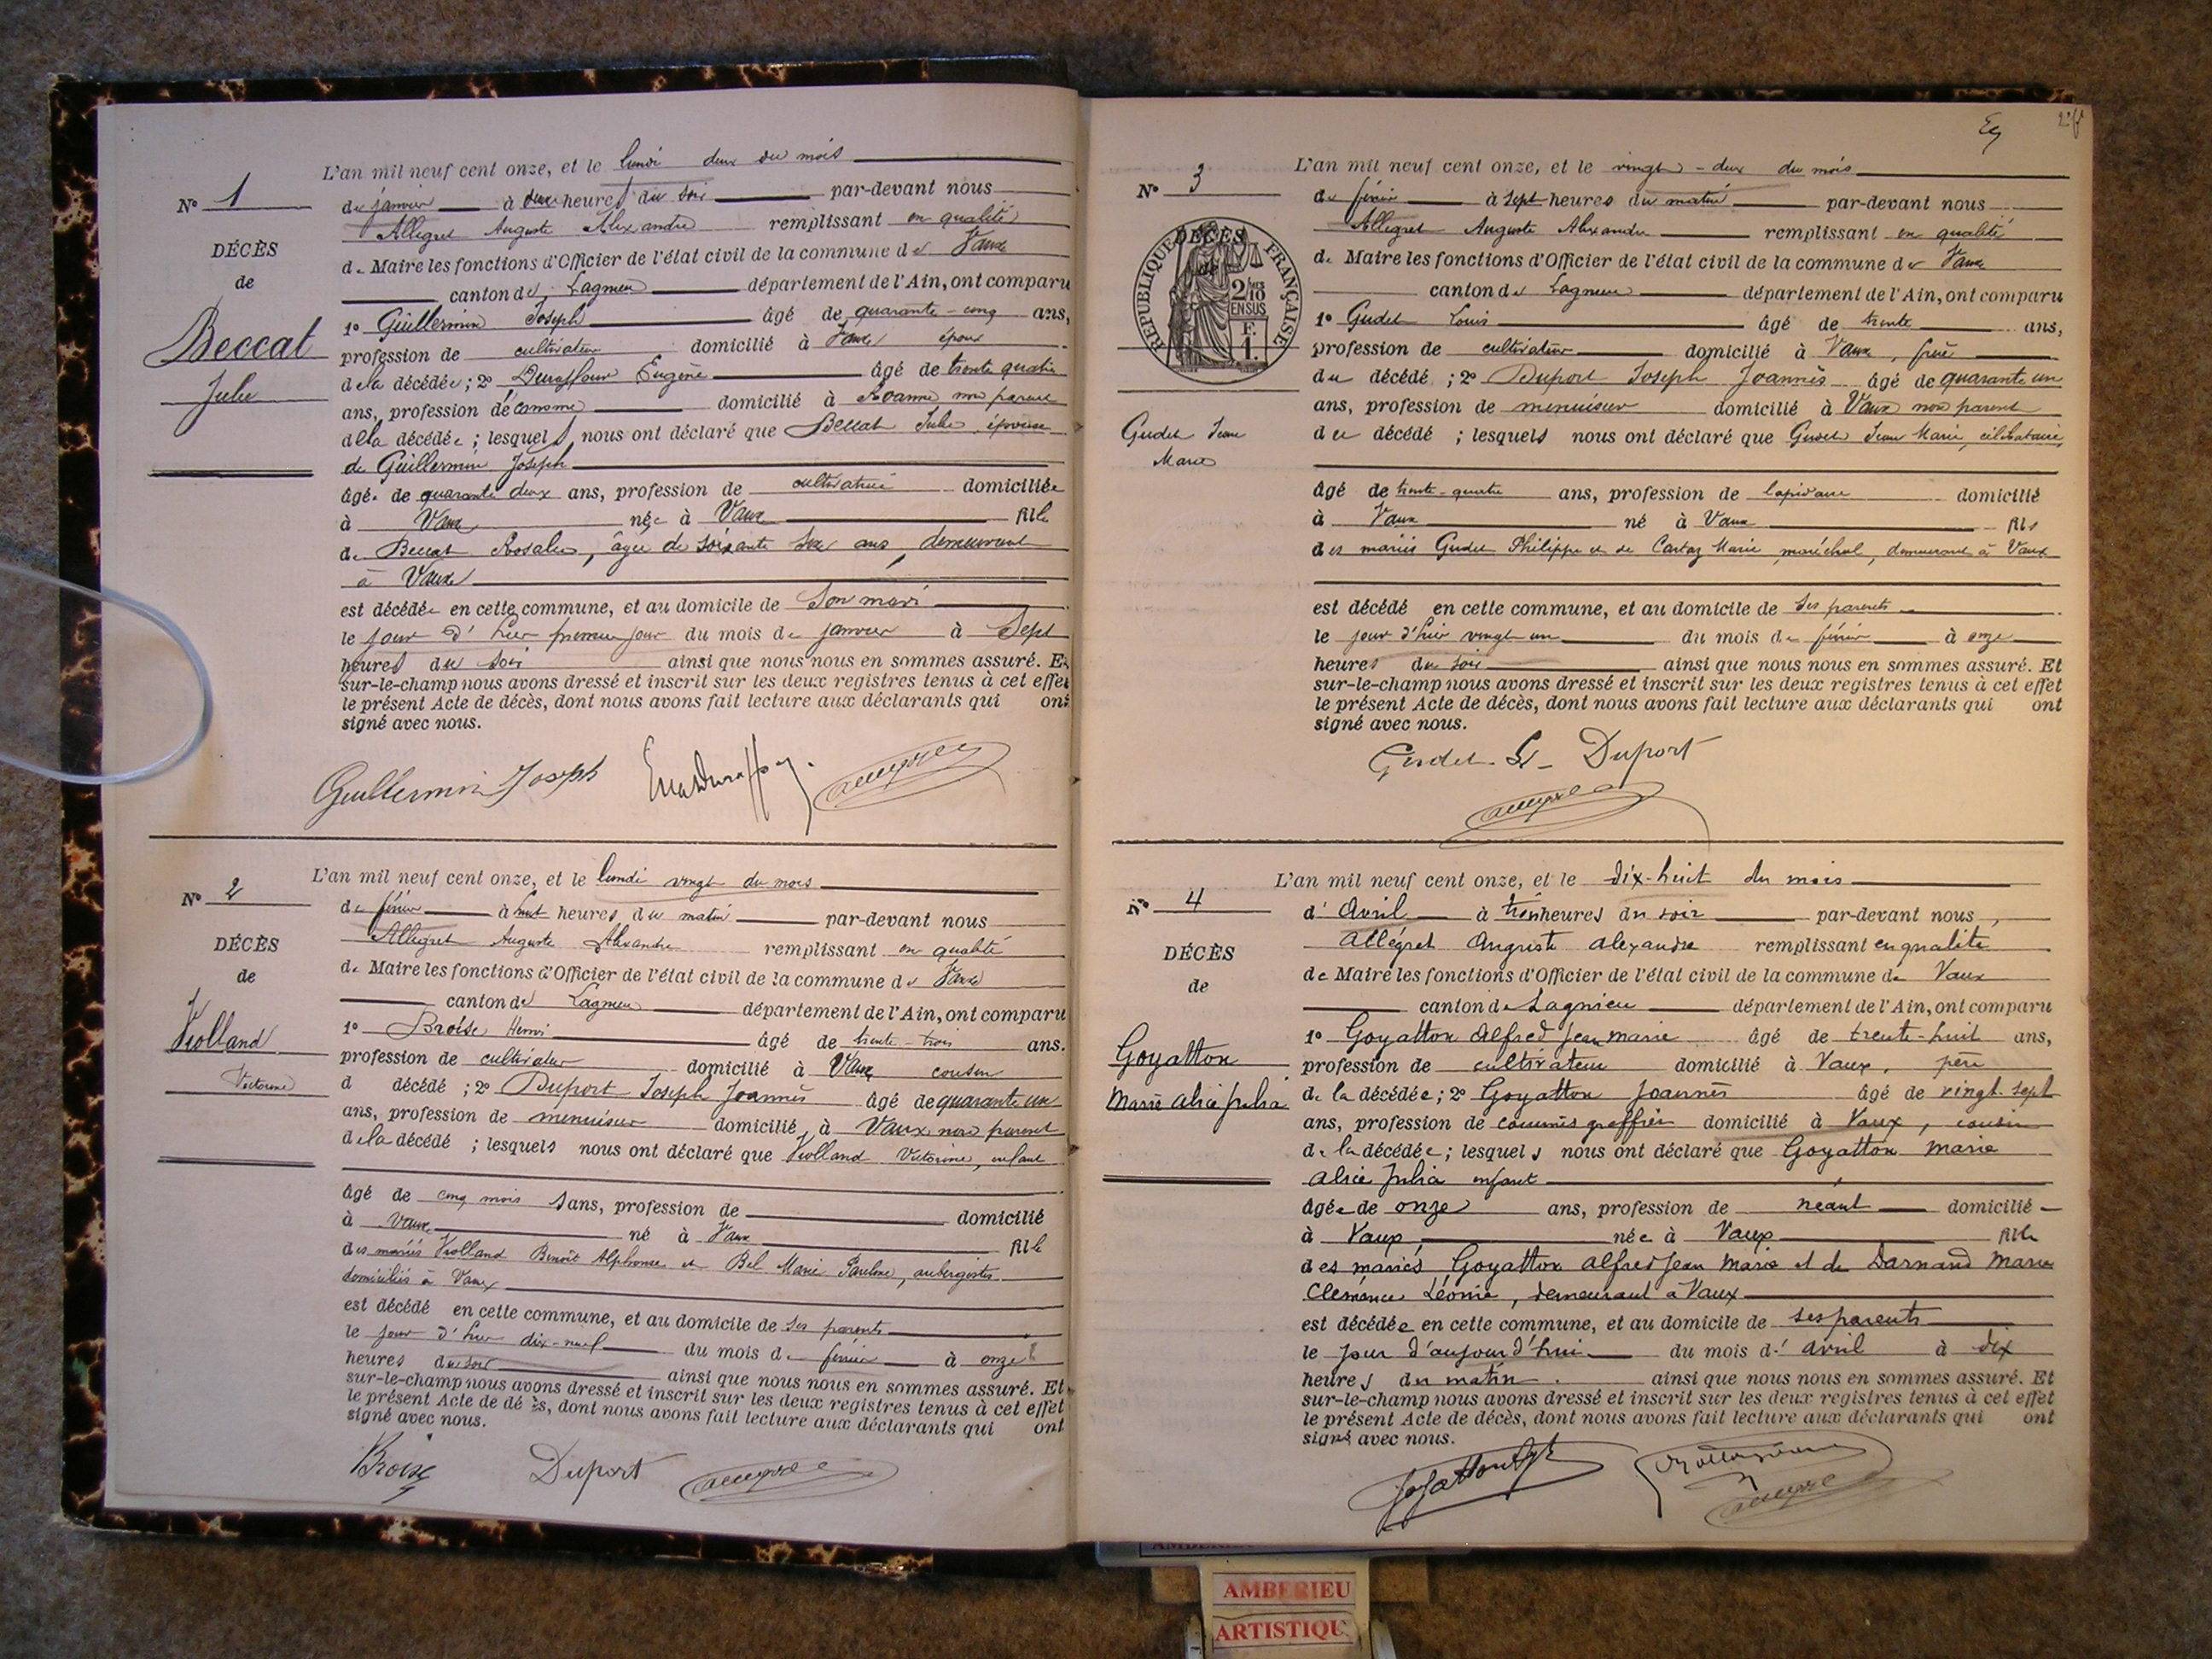 L'an mil neuf cent onze, et le lundi deux du mois
N° 1
de janvier à deux heures du soir par-devant nous
Allegret Auguste Alexandre remplissant en qualité
DÉCÈS
de Maire les fonctions d'Officier de l'état civil de la commune de Vaux
de
canton de Lagnieu département de l'Ain, ont comparu
Beccat
Julie
1° Guillermin Joseph âgé de quarante-cinq ans,
profession de cultivateur domicilié à Vaux époux
de la décédée; 2° Duraffour Eugène âgé de trente quatre
ans, profession d'économe domicilié à Roanne non parent
de la décédée; lesquels nous ont déclaré que Beccat Julie, épouse
de Guillermin Joseph
âgée de quarante deux ans, profession de cultivatrice domiciliée
à Vaux née à Vaux fille
de Beccat Rosalie, âgée de soixante six ans, demeurant
à Vaux
est décédée en cette commune, et au domicile de son mari
le jour d'hier premier jour du mois de janvier à sept
heures du soir ainsi que nous nous en sommes assuré. Et
sur-le-champ nous avons dressé et inscrit sur les deux registres tenus à cet effet
le présent Acte de décès, dont nous avons fait lecture aux déclarants qui ont
signé avec nous.
Guillermin Joseph
L'an mil neuf cent onze, et le lundi vingt du mois
N° 2
de février à huit heures du matin par-devant nous
Allegret Auguste Alexandre remplissant en qualité
DÉCÈS
de Maire les fonctions d'Officier de l'état civil de la commune de Vaux
de
canton de Lagnieu département de l'Ain, ont comparu
Violland
Victorine
1° Broise Henri âgé de trente-trois ans.
profession de cultivateur domicilié à Vaux cousin
d décédé; 2° Duport Joseph Joannès âgé de quarante un
ans, profession de menuisier domicilié à Vaux non parent
de la décédé; lesquels nous ont déclaré que Violland Victorine, enfant
âgé de cinq mois ans, profession de domicilié
à Vaux né à Vaux fille
des mariés Violland Benoît Alphonse et Bel Marie Pauline, aubergistes
domiciliés à Vaux
est décédé en cette commune, et au domicile de ses parents
le jour d'hier dix-neuf du mois de février à onze
heures du soir ainsi que nous nous en sommes assuré. Et
sur-le-champ nous avons dressé et inscrit sur les deux registres tenus à cet effet
le présent Acte de décès, dont nous avons fait lecture aux déclarants qui ont
signé avec nous.
Broise Duport
L'an mil neuf cent onze, et le vingt-deux du mois
N° 3
de février à sept heures du matin par-devant nous
Allegret Auguste Alexandre remplissant en qualité
DÉCÈS
de
RÉPUBLIQUE FRANÇAISE
2/10 EN SUS
F. 1.
de Maire les fonctions d'Officier de l'état civil de la commune de Vaux
canton de Lagnieu département de l'Ain, ont comparu
1° Gudet Louis âgé de trente ans,
profession de cultivateur domicilié à Vaux, frère
du décédé; 2° Duport Joseph Joannès âgé de quarante un
ans, profession de menuisier domicilié à Vaux non parent
Gudet Jean
Marie
du décédé; lesquels nous ont déclaré que Gudet Jean Marie, célibataire
âgé de trente-quatre ans, profession de lapidaire domicilié
à Vaux né à Vaux fils
des mariés Gudet Philippe et de Cartaz Marie, maréchal, demeurant à Vaux
est décédé en cette commune, et au domicile de ses parents
le jour d'hier vingt un du mois de février à onze
heures du soir ainsi que nous nous en sommes assuré. Et
sur-le-champ nous avons dressé et inscrit sur les deux registres tenus à cet effet
le présent Acte de décès, dont nous avons fait lecture aux déclarants qui ont
signé avec nous.
Gudet Ls Duport
L'an mil neuf cent onze, et le dix-huit du mois
N° 4
d'Avril à trois heures du soir par-devant nous,
Allégret Auguste Alexandre remplissant en qualité
DÉCÈS
de Maire les fonctions d'Officier de l'état civil de la commune de Vaux
de
canton de Lagnieu département de l'Ain, ont comparu
Goyatton
Marie Alice Julia
1° Goyatton Alfred Jean Marie âgé de trente-huit ans,
profession de cultivateur domicilié à Vaux, père
de la décédée; 2° Goyatton Joannès âgé de vingt sept
ans, profession de commis greffier domicilié à Vaux, cousin
de la décédée; lesquels nous ont déclaré que Goyatton Marie
Alice Julia enfant
âgée de onze ans, profession de néant domicilié
à Vaux née à Vaux fille
des mariés Goyatton Alfred Jean Marie et de Darnand Marie
Clémence Léonie, demeurant à Vaux
est décédée en cette commune, et au domicile de ses parents
le jour d'aujourd'hui du mois d'avril à dix
heures du matin. ainsi que nous nous en sommes assuré. Et
sur-le-champ nous avons dressé et inscrit sur les deux registres tenus à cet effet
le présent Acte de décès, dont nous avons fait lecture aux déclarants qui ont
signé avec nous.
AMBERIEU
ARTISTIQU